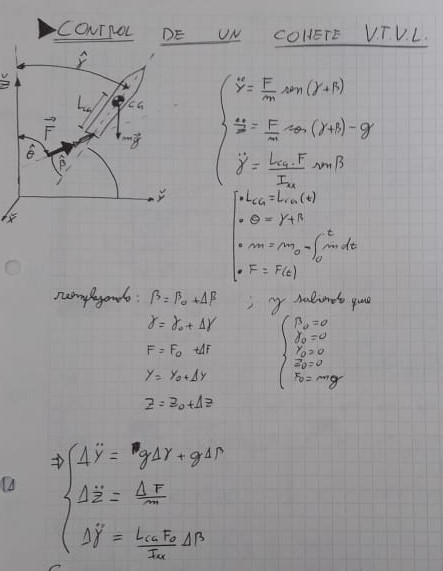 ▶CONTROL DE UN COHETE V.T.V.L.
Ÿ = F/m sen(γ+β)
Z̈ = F/m cos(γ+β) - g
γ̈ = L_CG · F / I_xx sen β
Z̆
γ̂
L_CG
CG
F⃗
mg⃗
θ̂
β̂
Y̆
X̆
• L_CG = L_CG(t)
• θ = γ+β
• m = m₀ - ∫₀ᵗ ṁ dt
• F = F(t)
reemplazando: β = β₀ + Δβ ; y sabiendo que
γ = γ₀ + Δγ
F = F₀ + ΔF
Y = Y₀ + ΔY
Z = Z₀ + ΔZ
β₀ = 0
γ₀ = 0
Y₀ = 0
Z₀ = 0
F₀ = mg
⇒ ΔŸ = gΔγ + gΔβ
ΔZ̈ = ΔF/m
Δγ̈ = L_CG F₀ / I_xx Δβ